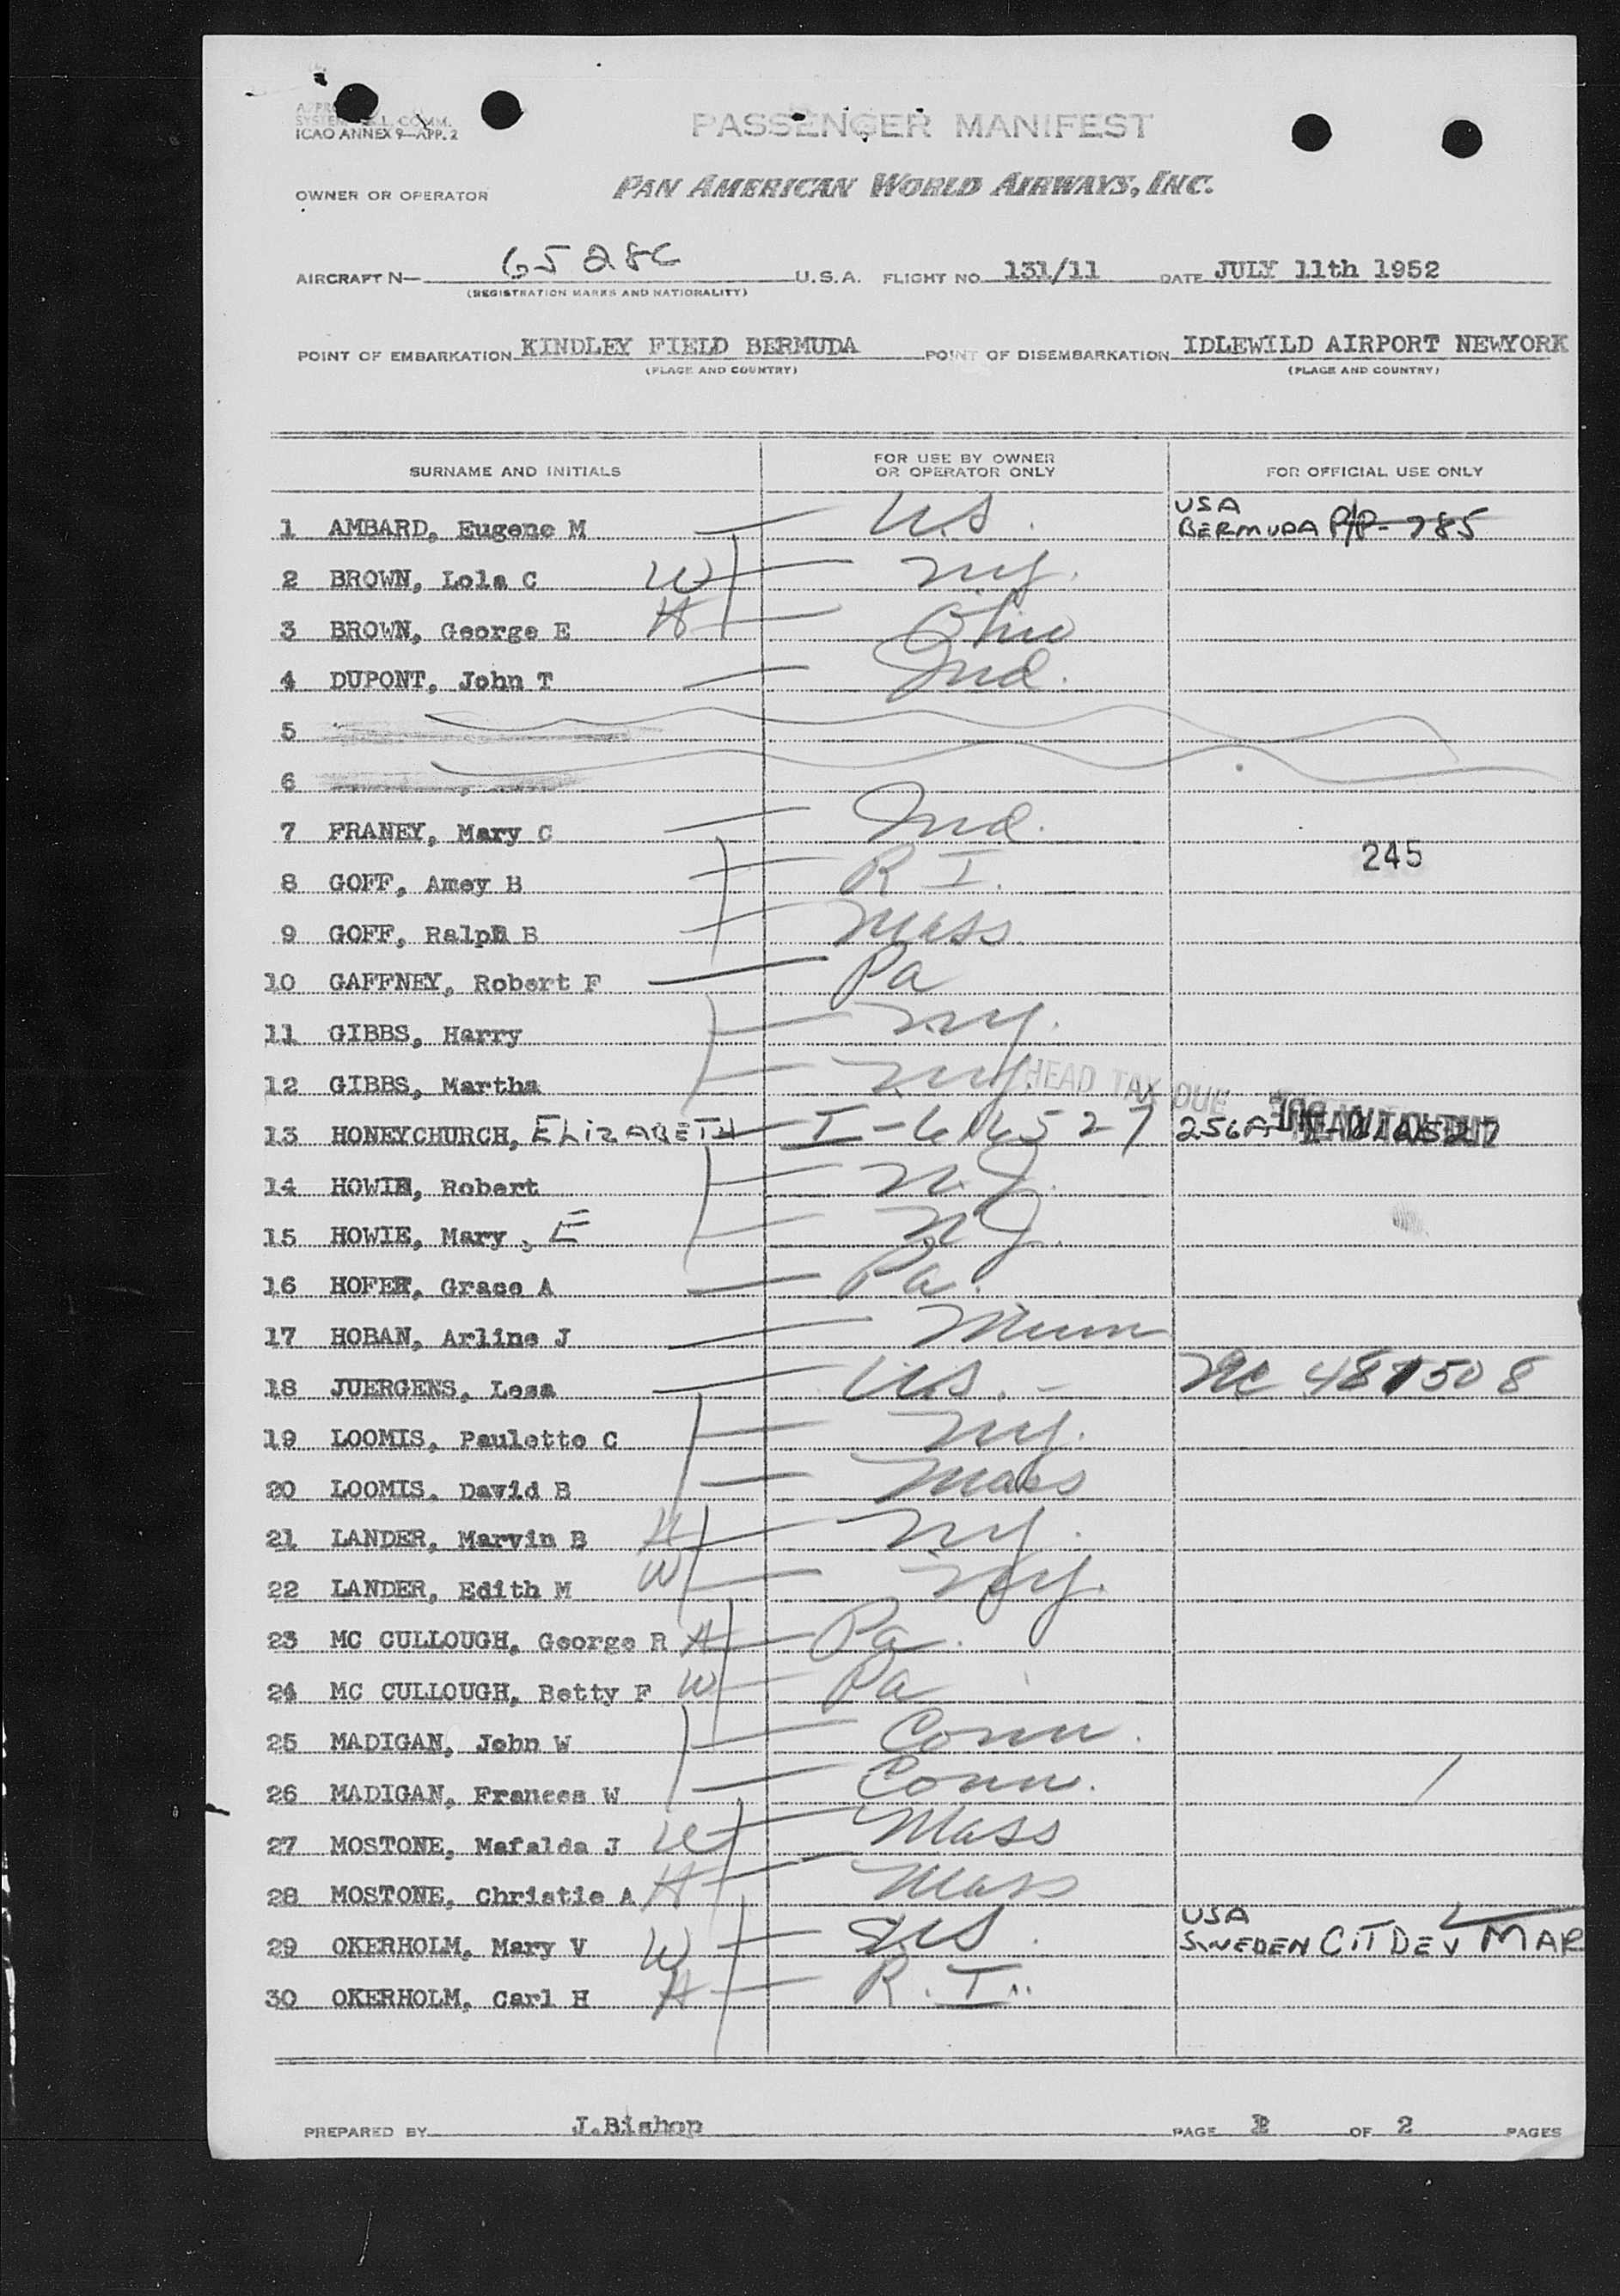 ICAO ANNEX 9—APP. 2
PASSENGER MANIFEST
OWNER OR OPERATOR PAN AMERICAN WORLD AIRWAYS, INC.
AIRCRAFT N— 6528C U.S.A. FLIGHT NO. 131/11 DATE JULY 11th 1952
(REGISTRATION MARKS AND NATIONALITY)
POINT OF EMBARKATION KINDLEY FIELD BERMUDA POINT OF DISEMBARKATION IDLEWILD AIRPORT NEWYORK
(PLACE AND COUNTRY) (PLACE AND COUNTRY)
SURNAME AND INITIALS FOR USE BY OWNER OR OPERATOR ONLY FOR OFFICIAL USE ONLY
USA
1 AMBARD, Eugene M U.S. BERMUDA P/P-785
2 BROWN, Lola C W NY.
3 BROWN, George E H Ohio
4 DUPONT, John T Ind.
5
6
7 FRANEY, Mary C Ind.
245
8 GOFF, Amey B R I.
9 GOFF, Ralph B Mass
10 GAFFNEY, Robert F Pa
11 GIBBS, Harry NY.
12 GIBBS, Martha NY. HEAD TAX DUE
13 HONEYCHURCH, ELIZABETH I-616527 256A
14 HOWIE, Robert N.J.
15 HOWIE, Mary, E N J.
16 HOFER, Grace A Pa.
17 HOBAN, Arline J Minn
18 JUERGENS, Lesa U.S. - 481508
19 LOOMIS, Paulette C NY.
20 LOOMIS, David B Mass
21 LANDER, Marvin B H NY.
22 LANDER, Edith M W NY.
23 MC CULLOUGH, George R H Pa.
24 MC CULLOUGH, Betty F W Pa
25 MADIGAN, John W Conn.
26 MADIGAN, Frances W Conn.
27 MOSTONE, Mafalda J W Mass
28 MOSTONE, Christie A H Mass
USA
29 OKERHOLM, Mary V W US. SWEDEN CIT DEV MAR
30 OKERHOLM, Carl H H R.I.
PREPARED BY J.Bishop PAGE 1 OF 2 PAGES